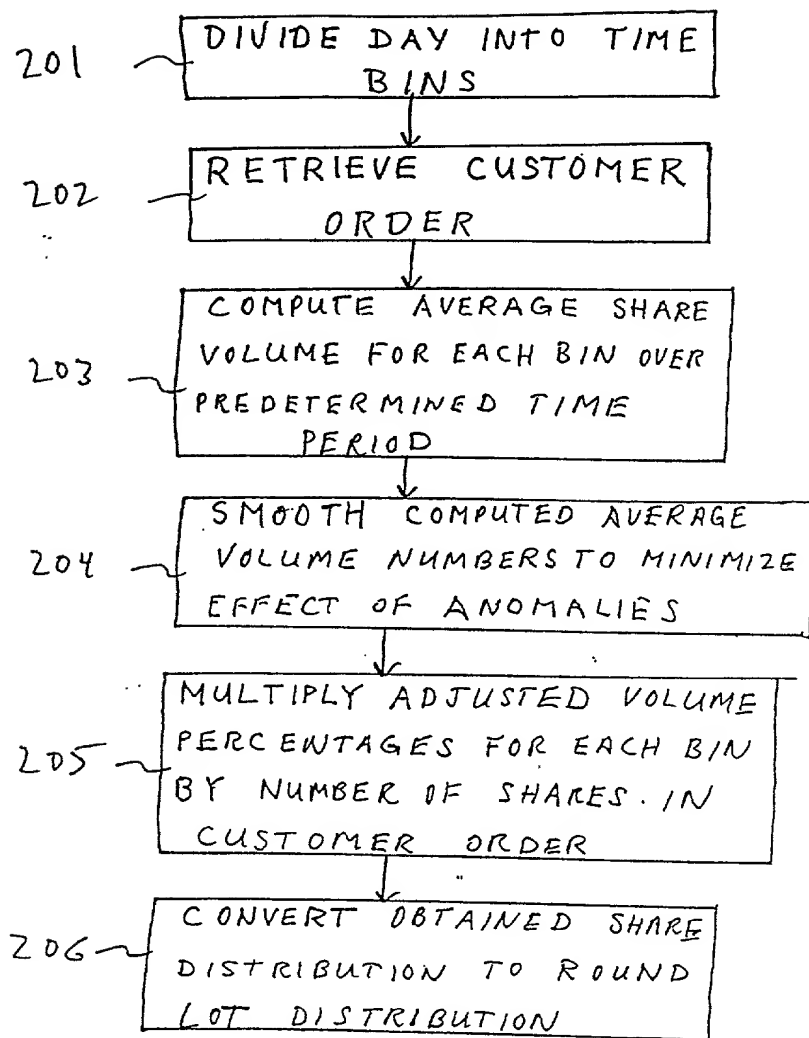 201
DIVIDE DAY INTO TIME
BINS
202
RETRIEVE CUSTOMER
ORDER
203
COMPUTE AVERAGE SHARE
VOLUME FOR EACH BIN OVER
PREDETERMINED TIME
PERIOD
204
SMOOTH COMPUTED AVERAGE
VOLUME NUMBERS TO MINIMIZE
EFFECT OF ANOMALIES
205
MULTIPLY ADJUSTED VOLUME
PERCENTAGES FOR EACH BIN
BY NUMBER OF SHARES. IN
CUSTOMER ORDER
206
CONVERT OBTAINED SHARE
DISTRIBUTION TO ROUND
LOT DISTRIBUTION